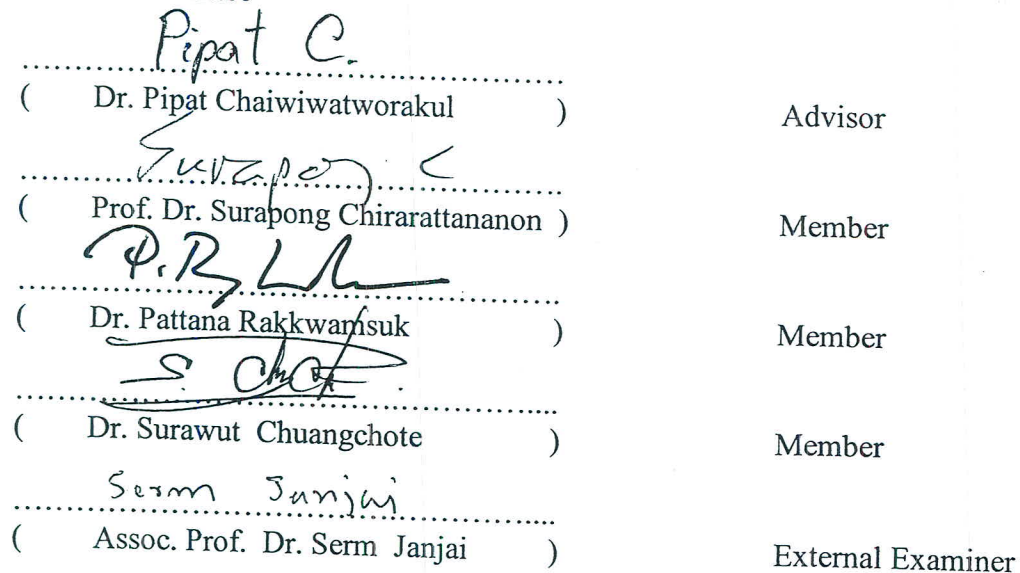 Pipat C.
( Dr. Pipat Chaiwiwatworakul ) Advisor
Surapong C
( Prof. Dr. Surapong Chirarattananon ) Member
P. R
( Dr. Pattana Rakkwamsuk ) Member
S. Ch
( Dr. Surawut Chuangchote ) Member
Serm Janjai
( Assoc. Prof. Dr. Serm Janjai ) External Examiner